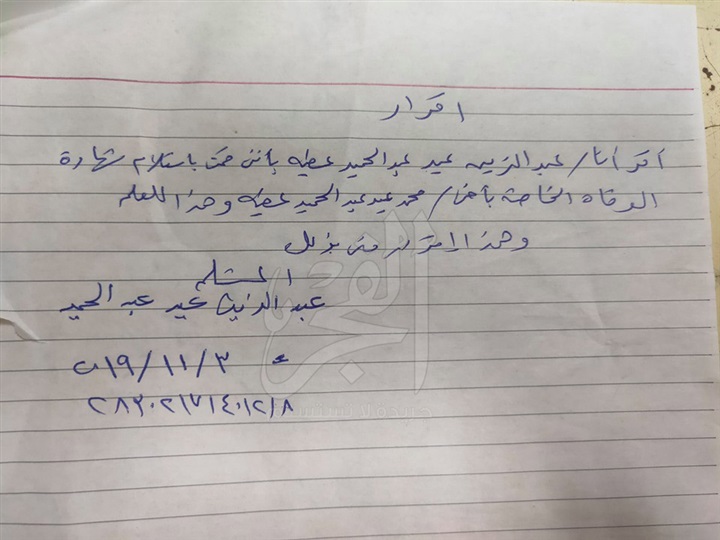 اقرار
أقر أنا/ عبد الزينه عيد عبد الحميد عطيه بأنني قمت باستلام شهادة
الوفاه الخاصة بأخي/ محمد عيد عبد الحميد عطيه وهذا للعلم
وهذا اقرار مني بذلك
المستلم
عبد الزينه عيد عبد الحميد
٢٠١٩/١١/٣
الفجر